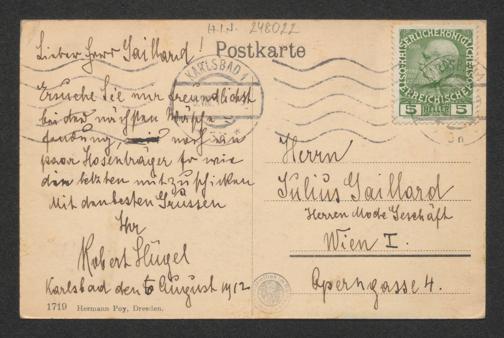 H.I.N. 248022
Lieber Herr Gaillard!
Postkarte
KARLSBAD 1
Ersuche Sie mir freundlichst
bei der nächsten Wäsche
sendung, noch ein
paar Hosenträger so wie
die letzten mitzuschicken
Mit den besten Grüssen
Ihr
Robert Hügel
Karlsbad den 6 August 1912
1719 Hermann Poy, Dresden.
5 HELLER 5
Herrn
Julius Gaillard
Herren Mode Geschäft
Wien I.
Operngasse 4.